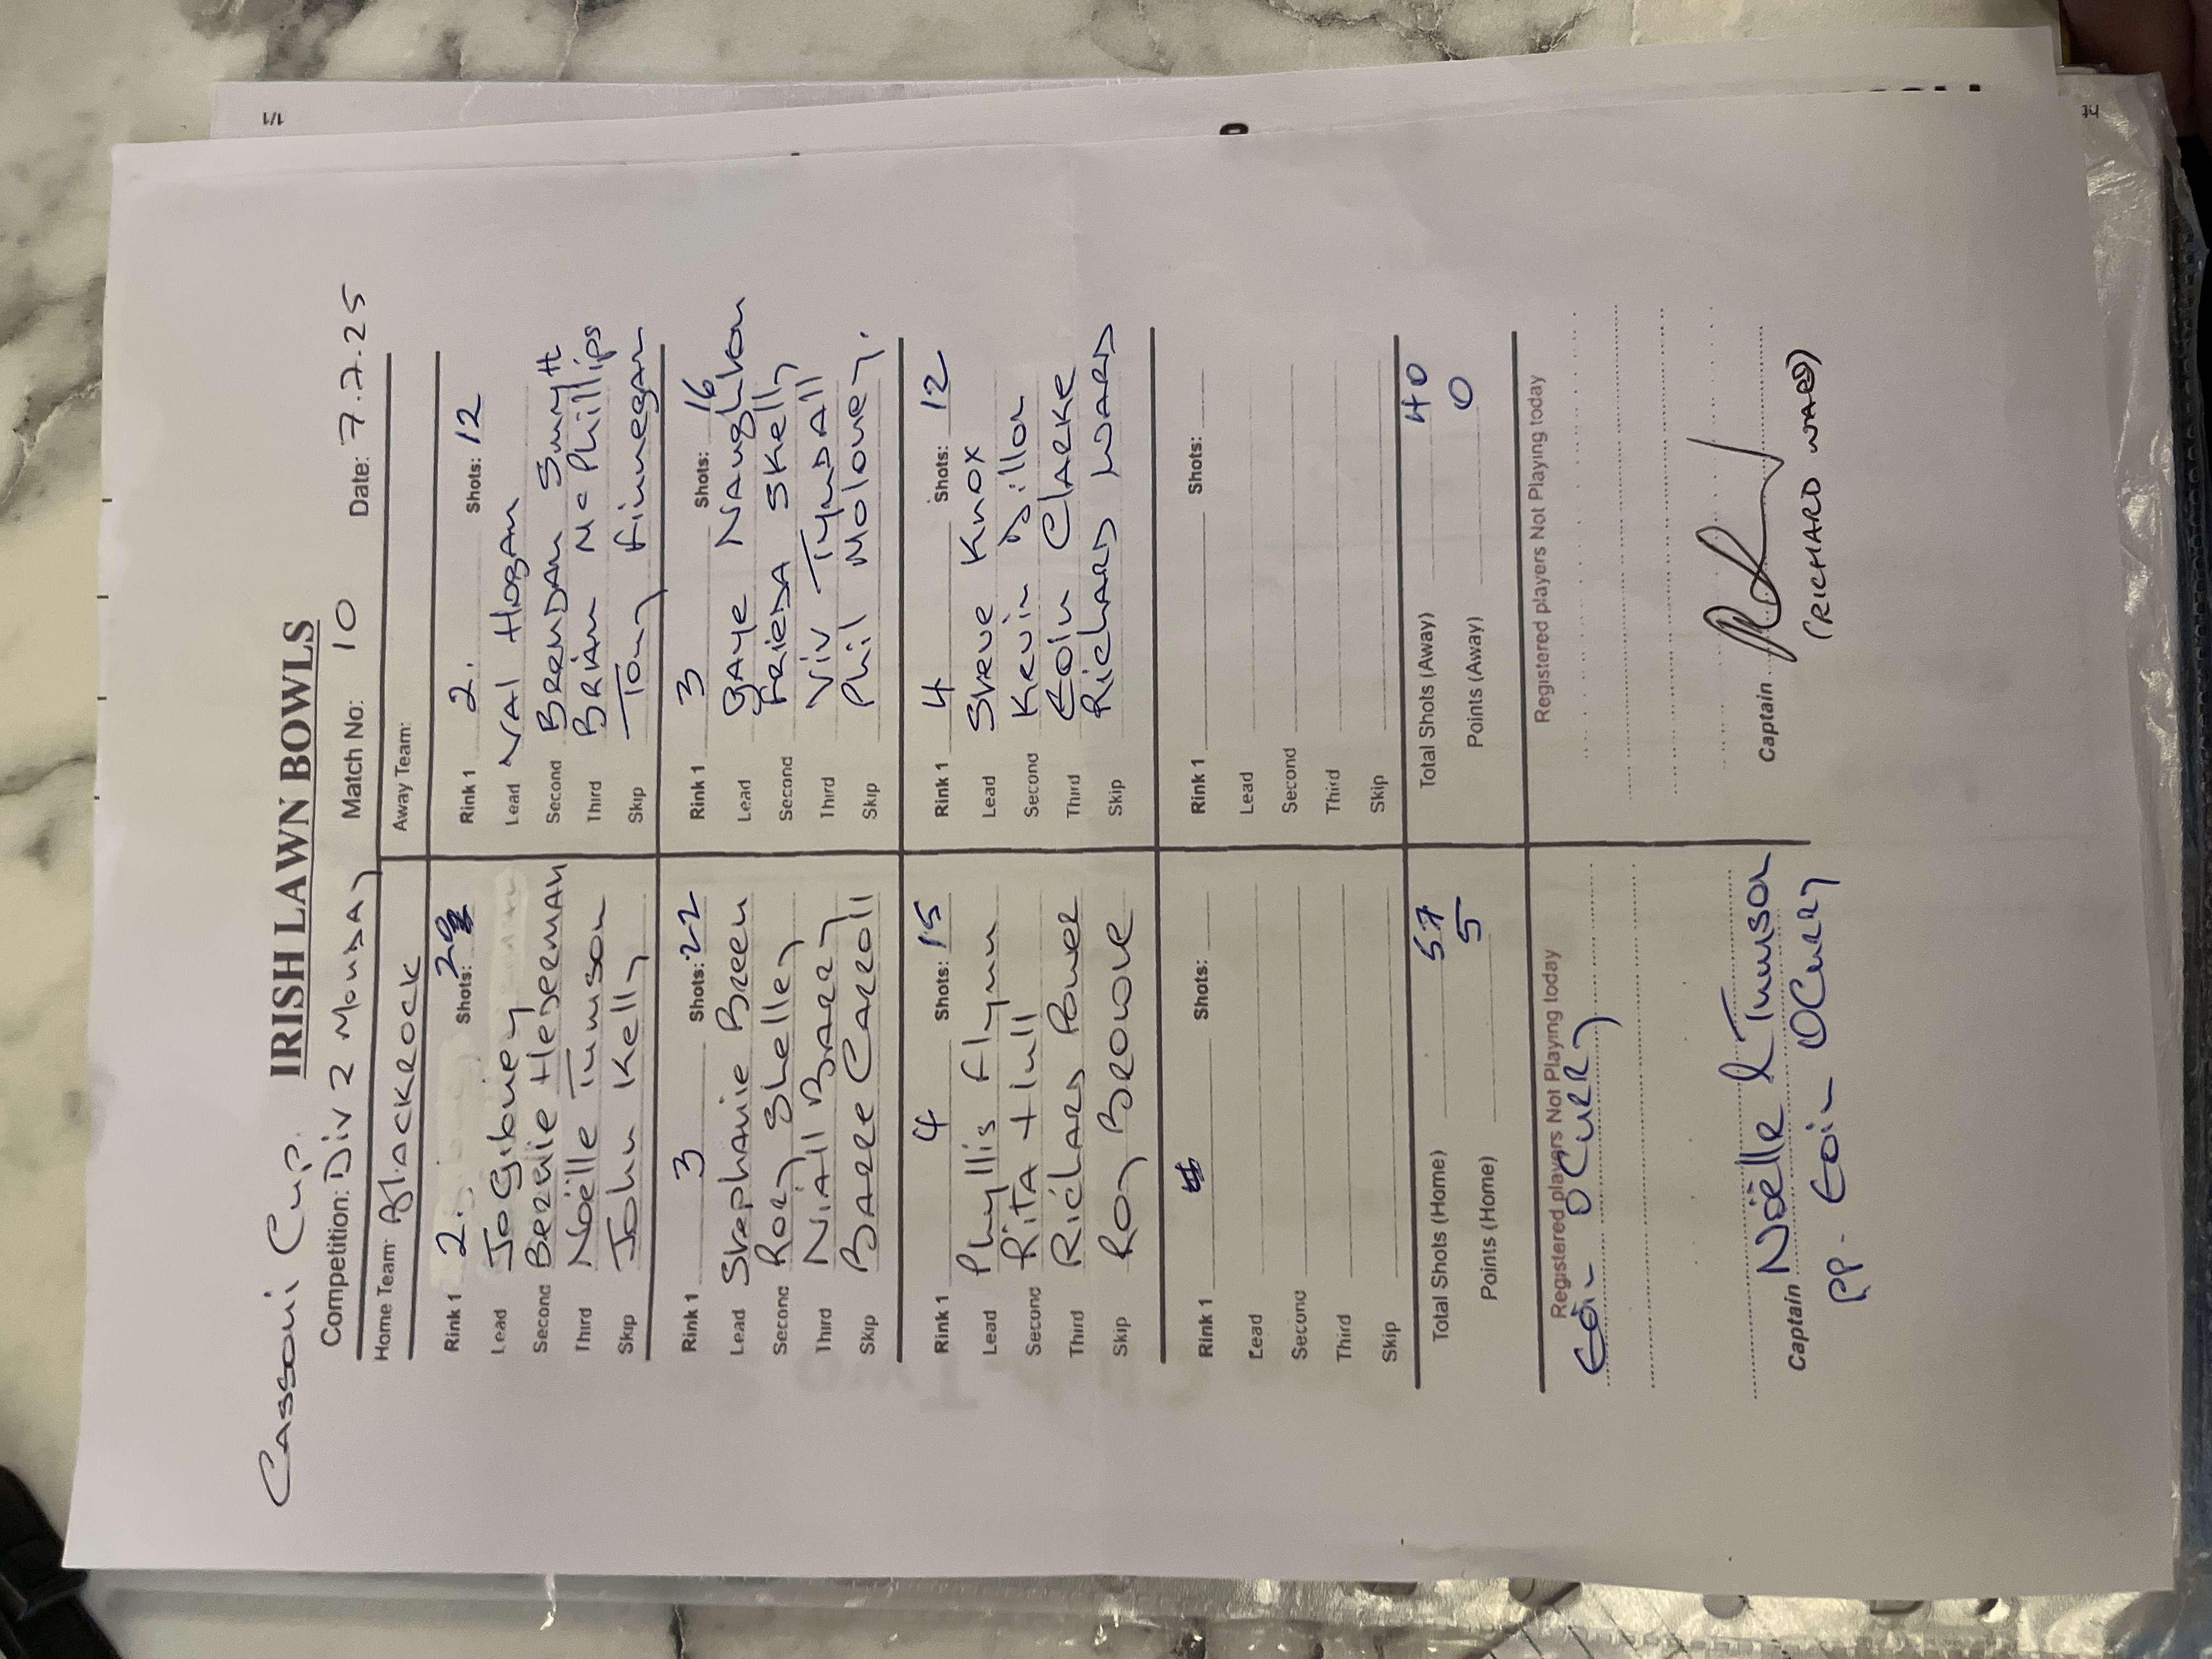 Cassoni Cup. IRISH LAWN BOWLS
Competition: Div 2 Monday Match No: 10 Date: 7.7.25
Home Team: Blackrock
Away Team:
Rink 1 2. Shots: 20
Lead Jo Gibney
Second Bernie Hederman
Third Noëlle Tunson
Skip John Kelly
Rink 1 2. Shots: 12
Lead Val Hogan
Second Brendan Smyth
Third Brian Mc Phillips
Skip Tony Finnegan
Rink 1 3 Shots: 22
Lead Stephanie Breen
Second Rory Shelley
Third Niall Barry
Skip Barre Carroll
Rink 1 3 Shots: 16
Lead Gaye Naughton
Second Frieda Skelly
Third Viv Tyndall
Skip Phil Moloney.
Rink 1 4 Shots: 15
Lead Phyllis Flynn
Second Rita Hull
Third Richard Power
Skip Roy Browne
Rink 1 4 Shots: 12
Lead Steve Knox
Second Kevin Dillon
Third Eoin Clarke
Skip Richard Ward
Rink 1 Shots:
Lead
Second
Third
Skip
Rink 1 Shots:
Lead
Second
Third
Skip
Total Shots (Home) 57
Points (Home) 5
Total Shots (Away) 40
Points (Away) 0
Registered players Not Playing today
Eoin O Curry
Registered players Not Playing today
Captain Noëlle Tunson
PP. Eoin O Curry
Captain
(RICHARD WARD)
1/1